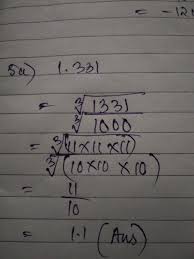 = -12
5a) 1.331
= ∛1331 / ∛1000
= ∛(11×11×11) / ∛(10×10×10)
= 11 / 10
= 1.1 (Ans)